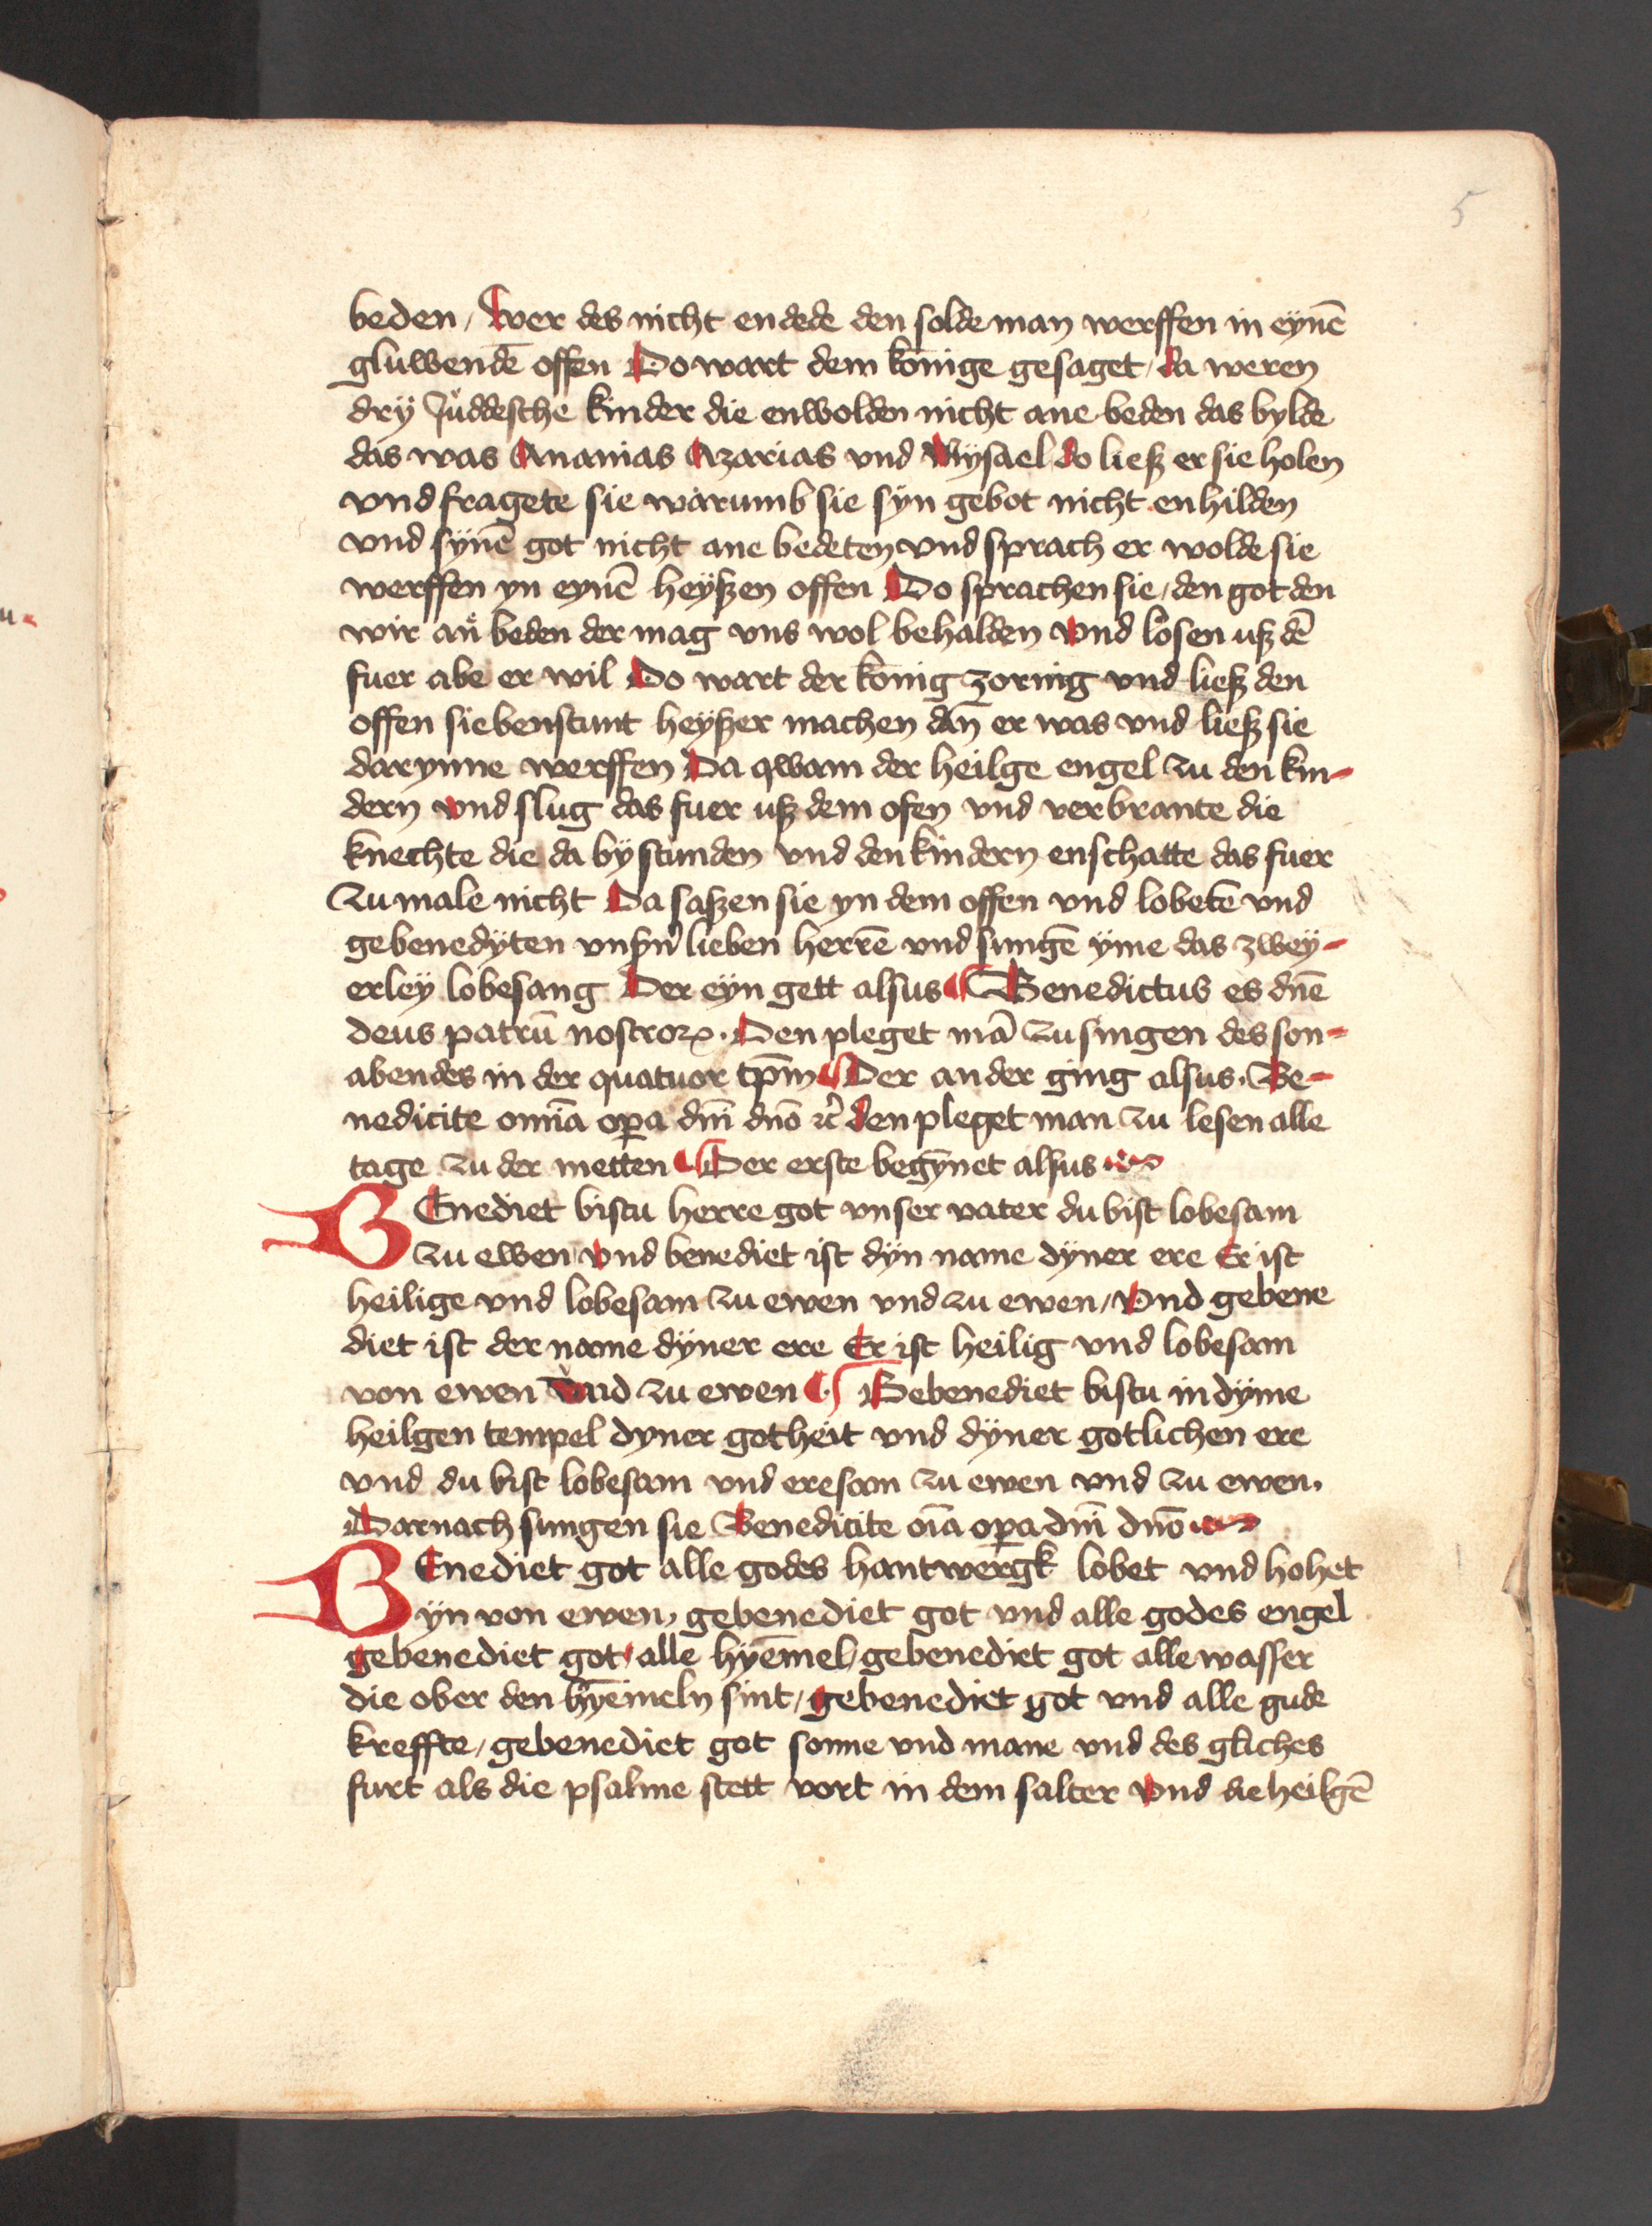 5
beden / Wer des nicht endede den solde man werffen in eynē
gluwendē offen Do wart dem konige gesaget / da weren
dry Juddesche kinder die enwolden nicht ane beden das bylde
das was Ananias Azarias vnd Mysael do ließ er sie holen
vnd fragete sie warumb sie syn gebot nicht enhilden
vnd synē got nicht ane bedeten vnd sprach er wolde sie
werffen yn eynē heyßen offen Do sprachen sie / den got den
wir an beden der mag vns wol behalden vnd losen uß dē
fuer abe er wil Do wart der konig zornig vnd ließ den
offen siebenstunt heyßer machen dan er was vnd ließ sie
darynne werffen Da qwam der heilge engel zu den kin-
dern vnd slug das fuer uß dem ofen vnd verbrante die
knechte die da by stunden vnd den kindern enschatte das fuer
zu male nicht Da saßen sie yn dem offen vnd lobetē vnd
gebenedyten vnsn̄ lieben herrē vnd sungē yme das zwey-
erley lobesang Der eyn gett alsus ¶ Benedictus es dn̄e
deus patrū nostroꝝ. Den pleget mā zu singen des son-
abendes in der quatuor tp̄m ¶ Der ander ging alsus. Be-
nedicite omīa oꝑa dn̄i dn̄o ꝛc̄ den pleget man zu lesen alle
tage zu der metten ¶ Der erste begynet alsus
BEnediet bistu herre got vnser vater du bist lobesam
zu ewen vnd benediet ist dyn name dyner ere Er ist
heilige vnd lobesam zu ewen vnd zu ewen / Vnd gebene
diet ist der name dyner ere Er ist heilig vnd lobesam
von ewen vnd zu ewen ¶ Gebenediet bistu in dyme
heilgen tempel dyner gotheit vnd dyner gotlichen ere
vnd du bist lobesam vnd eresam zu ewen vnd zu ewen.
Darnach sungen sie Benedicite oīa oꝑa dn̄i dn̄o
BEnediet got alle godes hantwergk lobet vnd hohet
yn von ewen, gebenediet got vnd alle godes engel
gebenediet got / alle hyem̄el / gebenediet got alle wasser
die ober den hyemeln sint / gebenediet got vnd alle gude
kreffte / gebenediet got sonne vnd mane vnd des gliches
furt als die psalme stett vort in dem salter vnd die heilgē